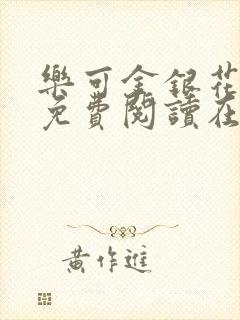 樂可金銀花
免費閱讀在
黃作進